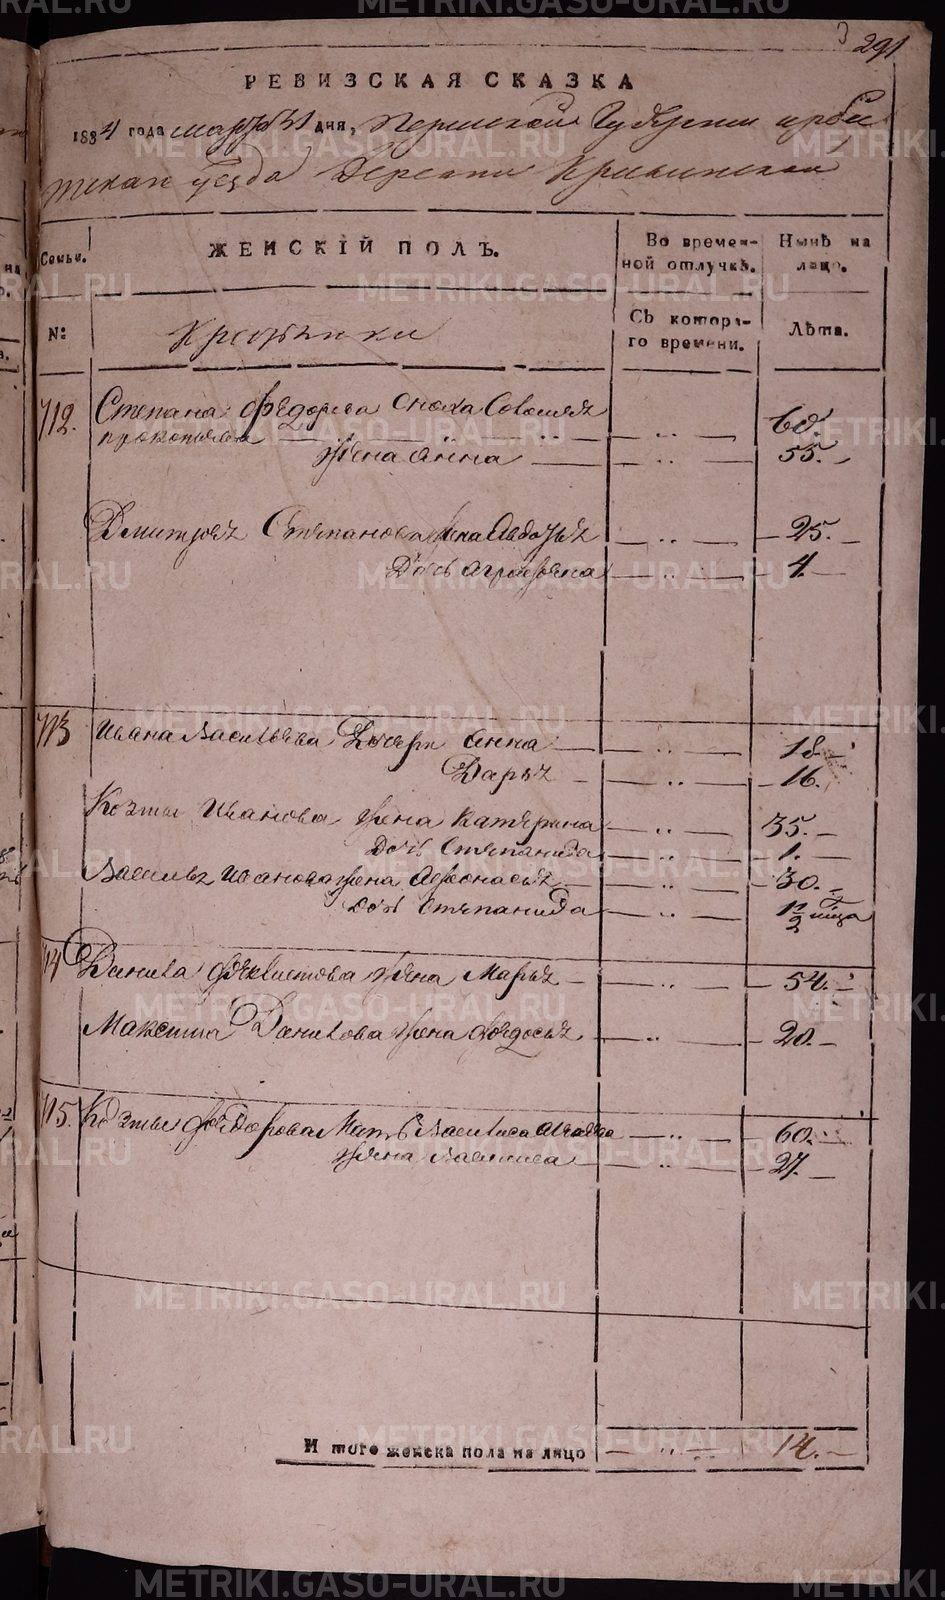 291
РЕВИЗСКАЯ СКАЗКА
1834 года марта 31 дня, Пермской Губернии ирби
тскаго Уезда Деревни
Семьи.
ЖЕНСКІЙ ПОЛЪ.
Во времен-
ной отлучкѣ.
Нынѣ на
лицо.
№:
Крестьянки
Съ которо-
го времени.
Лѣта.
712. Степана Федорова сноха 60.
прокопьева
жена анна 55.
Степанова жена Авдотья 25.
Дочь аграфена 4.
713 Ивана Васильева Дочери анна 18
Дарья 16.
Козмы Иванова жена Катерина 35.
дочь Степанида 1.
Василья Иванова жена Афонасья 30.
дочь Степанида 1/2
714 Данила Феклистова жена Марья 54.
Максима Данилова жена Федосья 20.
715. Козмы Федорова Мать Василиса 60.
жена Василиса 27.
И того женска пола на лицо 14.
METRIKI.GASO-URAL.RU